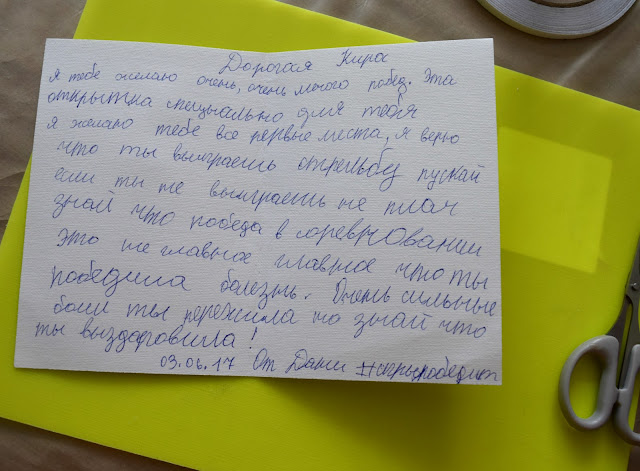 Дорогая Кира
Я тебе желаю очень, очень много побед. Эта
открытка специально для тебя
я желаю тебе все первые места, я верю
что ты выиграешь стрельбу пускай
если ты не выиграешь не плач
знай что победа в соревновании
это не главное главное что ты
победила болезнь. Очень сильные
боли ты пережила но знай что
ты выздоровила!
03.06.17 От Дани